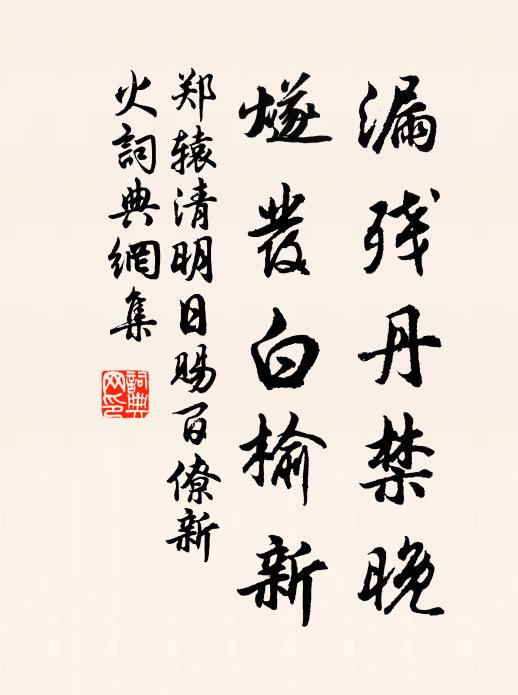 漏残丹禁晚
燧發白榆新
郑辕清明日賜百僚新
火詞典網集
詞典
网印